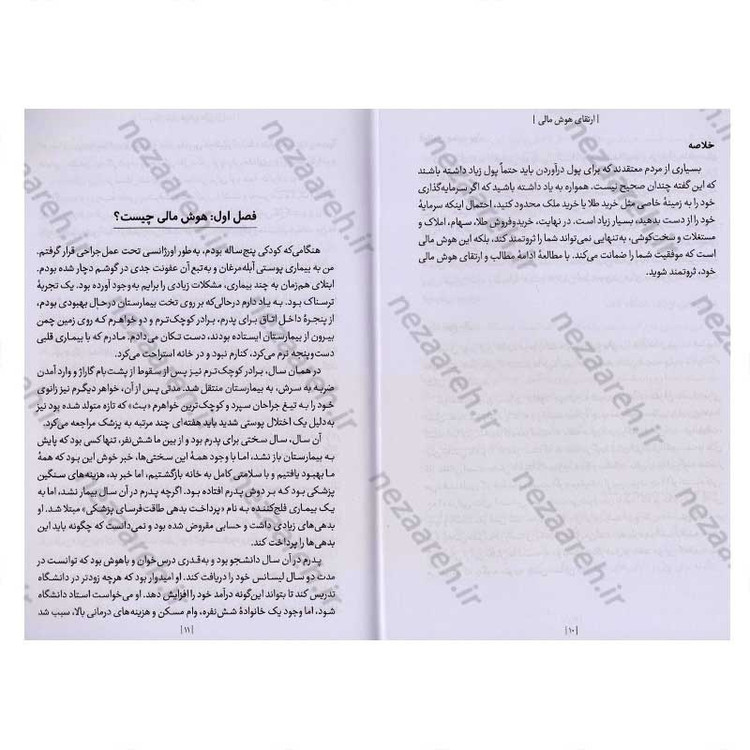 | ارتقای هوش مالی |
خلاصه
بسیاری از مردم معتقدند که برای پول درآوردن باید حتماً پول زیاد داشته باشند
که این گفته چندان صحیح نیست. همواره به یاد داشته باشید که اگر سرمایه‌گذاری
خود را به زمینهٔ خاصی مثل خرید طلا یا خرید ملک محدود کنید، احتمال اینکه سرمایهٔ
خود را از دست بدهید، بسیار زیاد است. در نهایت، خریدوفروش طلا، سهام، املاک و
مستغلات و سخت‌کوشی، به‌تنهایی نمی‌تواند شما را ثروتمند کند، بلکه این هوش مالی
است که موفقیت شما را ضمانت می‌کند. با مطالعهٔ ادامهٔ مطالب و ارتقای هوش مالی
خود، ثروتمند شوید.
| ۱۰ |
فصل اول: هوش مالی چیست؟
هنگامی‌که کودکی پنج‌ساله بودم، به‌طور اورژانسی تحت عمل جراحی قرار گرفتم.
من به بیماری پوستی آبله‌مرغان و به‌تبع آن عفونت جدی در گوشم دچار شده بودم.
ابتلای هم‌زمان به چند بیماری، مشکلات زیادی را برایم به‌وجود آورده بود. یک تجربهٔ
ترسناک بود. به یاد دارم درحالی‌که بر روی تخت بیمارستان درحال بهبودی بودم،
از پنجرهٔ داخل اتاق برای پدرم، برادر کوچک‌ترم و دو خواهرم که روی زمین چمن
بیرون از بیمارستان ایستاده بودند، دست تکان می‌دادم. مادرم که با بیماری قلبی
دست‌وپنجه نرم می‌کرد، کنارم نبود و در خانه استراحت می‌کرد.
در همان سال، برادر کوچک‌ترم نیز پس از سقوط از پشت‌بام گاراژ و وارد آمدن
ضربه به سرش، به بیمارستان منتقل شد. مدتی پس از آن، خواهر دیگرم نیز زانوی
خود را به تیغ جراحان سپرد و کوچک‌ترین خواهرم «بث» که تازه متولد شده بود نیز
به‌دلیل یک اختلال پوستی شدید باید هفته‌ای چند مرتبه به پزشک مراجعه می‌کرد.
آن سال، سال سختی برای پدرم بود و از بین ما شش‌نفر، تنها کسی بود که پایش
به بیمارستان باز نشد، اما با وجود همهٔ این سختی‌ها، خبر خوش این بود که همهٔ
ما بهبود یافتیم و با سلامتی کامل به خانه بازگشتیم، اما خبر بد، هزینه‌های سنگین
پزشکی بود که بر دوش پدرم افتاده بود. اگرچه پدرم در آن سال بیمار نشد، اما به
یک بیماری فلج‌کننده به نام «پرداخت بدهی طاقت‌فرسای پزشکی» مبتلا شد. او
بدهی‌های زیادی داشت و حسابی مقروض شده بود و نمی‌دانست که چگونه باید این
بدهی‌ها را پرداخت کند.
پدرم در آن سال دانشجو بود و به‌قدری درس‌خوان و باهوش بود که توانست در
مدت دو سال لیسانس خود را دریافت کند. او امیدوار بود که هرچه زودتر در دانشگاه
تدریس کند تا بتواند این‌گونه درآمد خود را افزایش دهد. او می‌خواست استاد دانشگاه
شود، اما وجود یک خانوادهٔ شش‌نفره، وام مسکن و هزینه‌های درمانی بالا، سبب شد
| ۱۱ |
nezaareh.ir
nezaareh.ir
nezaareh.ir
nezaareh.ir
nezaareh.ir
nezaareh.ir
nezaareh.ir
nezaareh.ir
nezaareh.ir